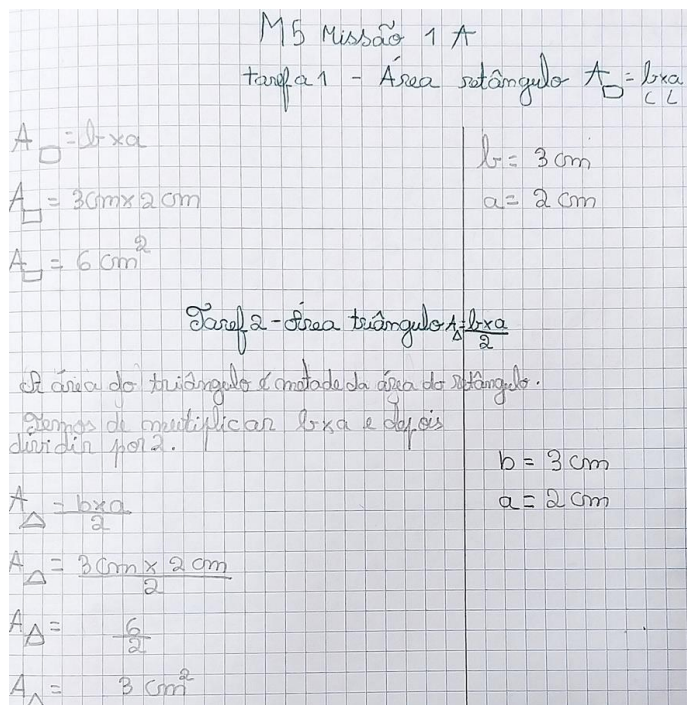 M5 Missão 1 A
tarefa 1 - Área retângulo A▭ = bxa
C L
A▭ = bxa
b = 3 cm
A▭ = 3cm x 2cm
a = 2 cm
A▭ = 6 cm²
Taref 2 - Área triângulo A△ = bxa/2
A área do triângulo é metade da área do retângulo.
Temos de multiplicar bxa e depois
dividir por 2.
b = 3 cm
A△ = bxa/2
a = 2 cm
A△ = 3cm x 2cm/2
A△ = 6/2
A△ = 3 cm²